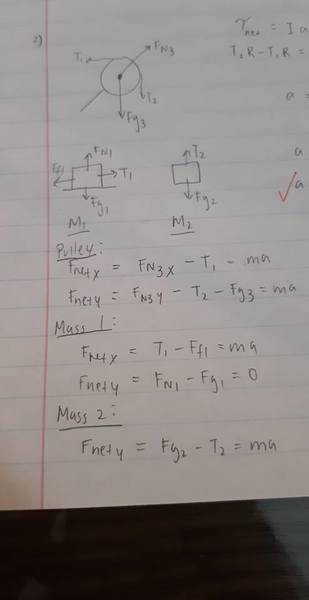 2)
T₁
FN3
T₂
Fg3
τnet = I a
T₂R - T₁R =
a =
a
✓a
Ff1
FN1
T₁
Fg1
M₁
T₂
Fg2
M₂
Pulley:
Fnetx = FN3x - T₁ - ma
Fnety = FN3y - T₂ - Fg3 = ma
Mass 1:
Fnetx = T₁ - Ff1 = ma
Fnety = FN1 - Fg1 = 0
Mass 2:
Fnety = Fg2 - T₂ = ma